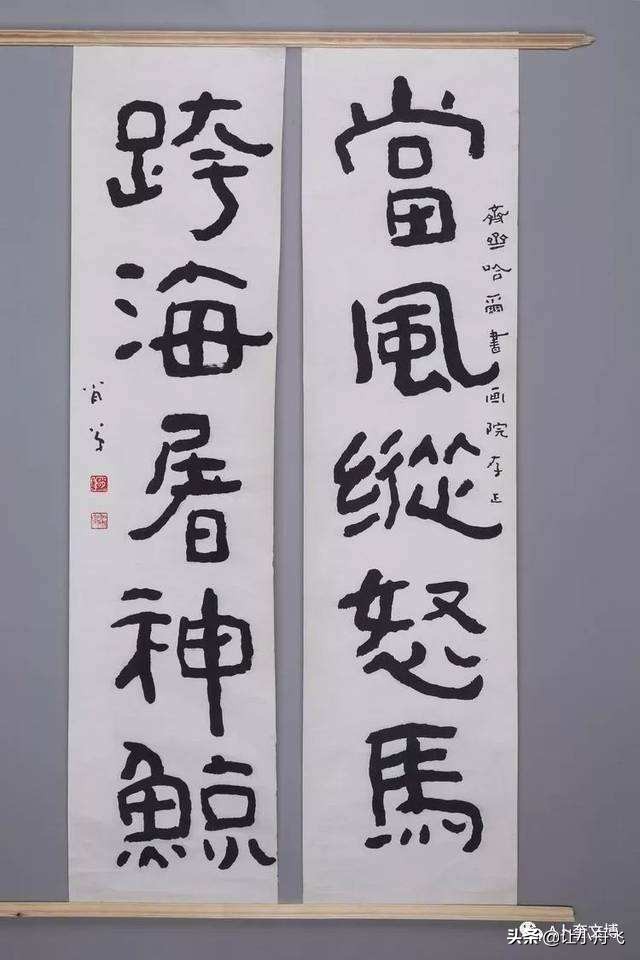 當風縱怒馬
齊齊哈爾書画院存正
跨海屠神鯨
卜奎文博
头条